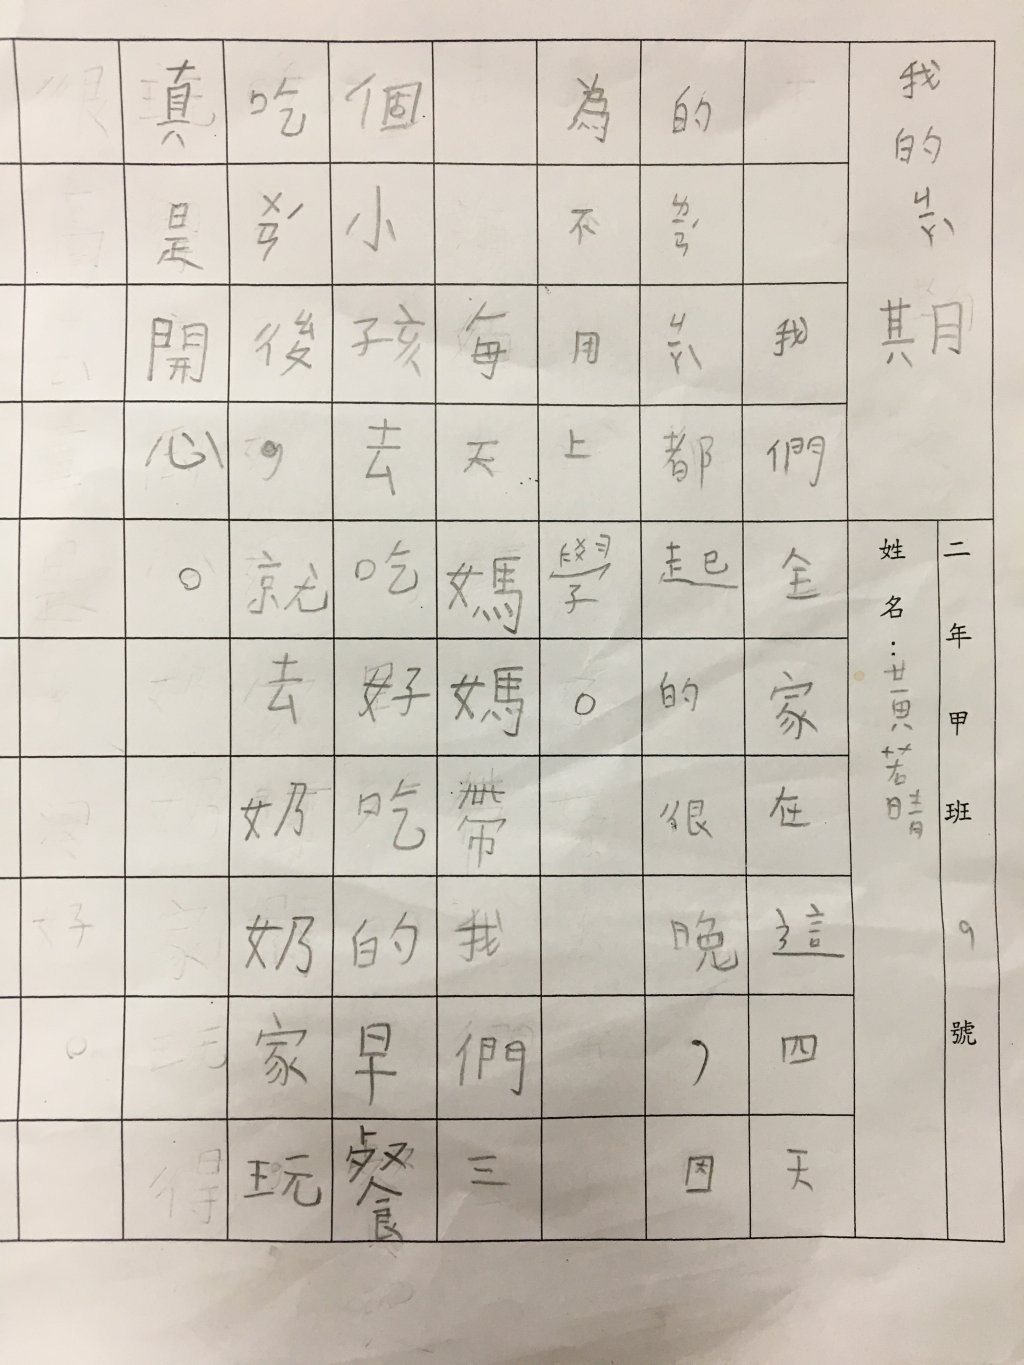 我的ㄐㄧㄚˋ期
二年甲班9號
姓名：黃若晴
我們全家在這四天
的ㄌㄧㄢˊㄐㄧㄚˋ都起的很晚，因
為不用上學。
每天媽媽帶我們三
個小孩去吃好吃的早餐
吃ㄨㄢˊ後，就去奶奶家玩
真是開心。